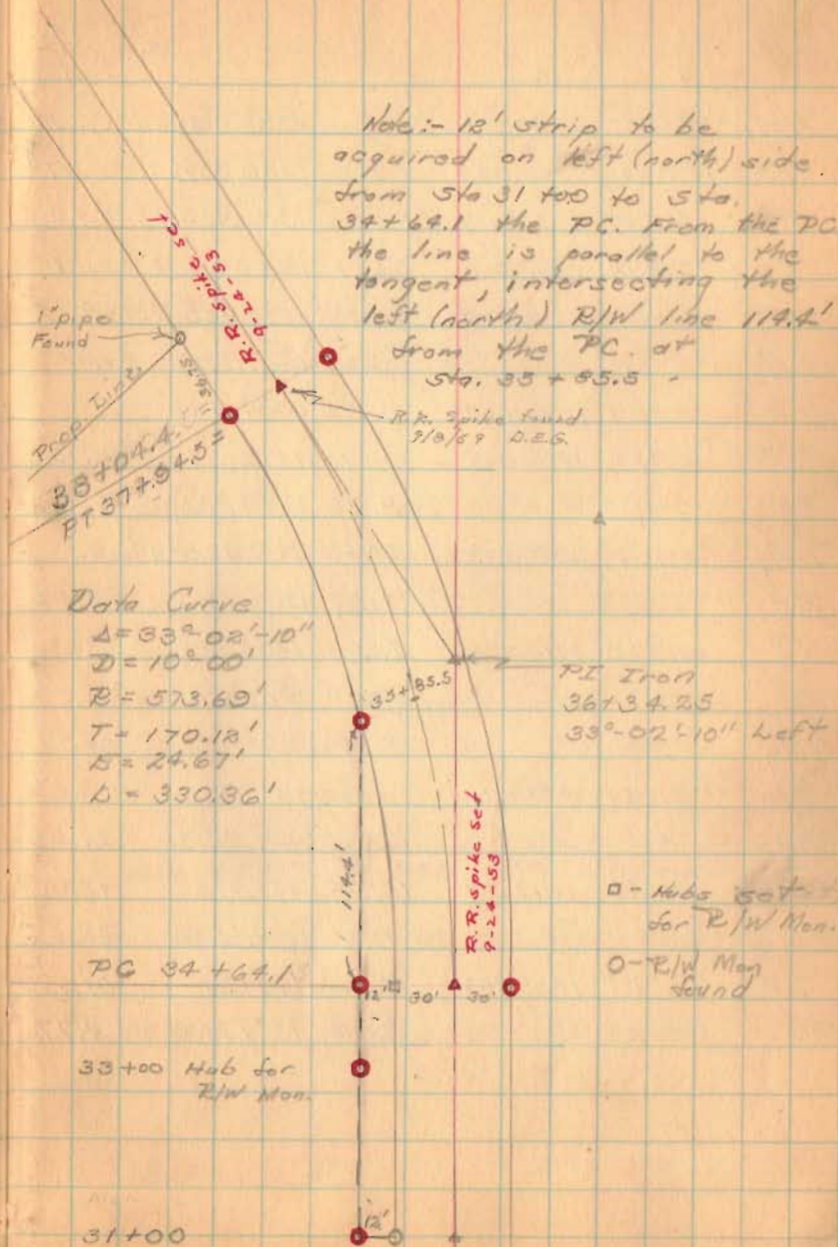 Note:- 12' strip to be
acquired on left (north) side
from Sta 31+00 to Sta.
34+64.1 the PC. From the PC
the line is parallel to the
tangent, intersecting the
left (north) R/W line 114.4'
from the PC. at
Sta. 35+85.5 -
R.R. spike set
9-24-53
1" pipe
Found
36.75
Prop Line
R.R. Spike found
9/8/69 D.E.G.
38+04.4
PT 37+94.5=
Data Curve
Δ=33°-02'-10"
D=10°-00'
R=573.69'
T=170.12'
E=24.67'
L=330.36'
35+85.5
PI Iron
36+34.25
33°-02'-10" Left
114.4'
R.R. spike set
9-24-53
□ - Hubs set
for R/W Mon.
O - R/W Mon
found
PC 34+64.1
12' 30' 30'
33+00 Hub for
R/W Mon.
31+00
12'